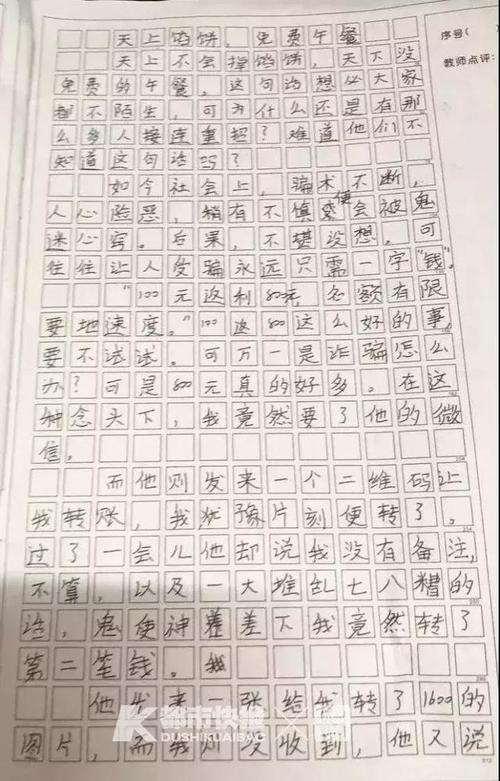 序号(
教师点评:
天上馅饼，免费午餐
天上不会掉馅饼，天下没
免费的午餐。这句话想必大家
都不陌生，可为什么还是有那
么多人接连重招？难道他们不
知道这句话吗？
如今社会上，骗术不断，
人心险恶，稍有不慎便会被鬼
迷心窍。后果，不堪设想。可
往往让人受骗永远只需一字“钱”。
“100元返利800元，名额有限
要地速度。”100返800这么好的事
要不试试。可万一是诈骗怎么
办？可是800元真的好多。在这
种念头下，我竟然要了他的微
信。
而他则发来一个二维码让
我转账，我犹豫片刻便转了。
过了一会儿他却说我没有备注，
不算，以及一大堆乱七八糟的
话，鬼使神差差下我竟然转了
第二笔钱。我
他发来一张给我转了1600的
图片，而我则没收到，他又说
K都市快报
DUSHIKUAIBAO